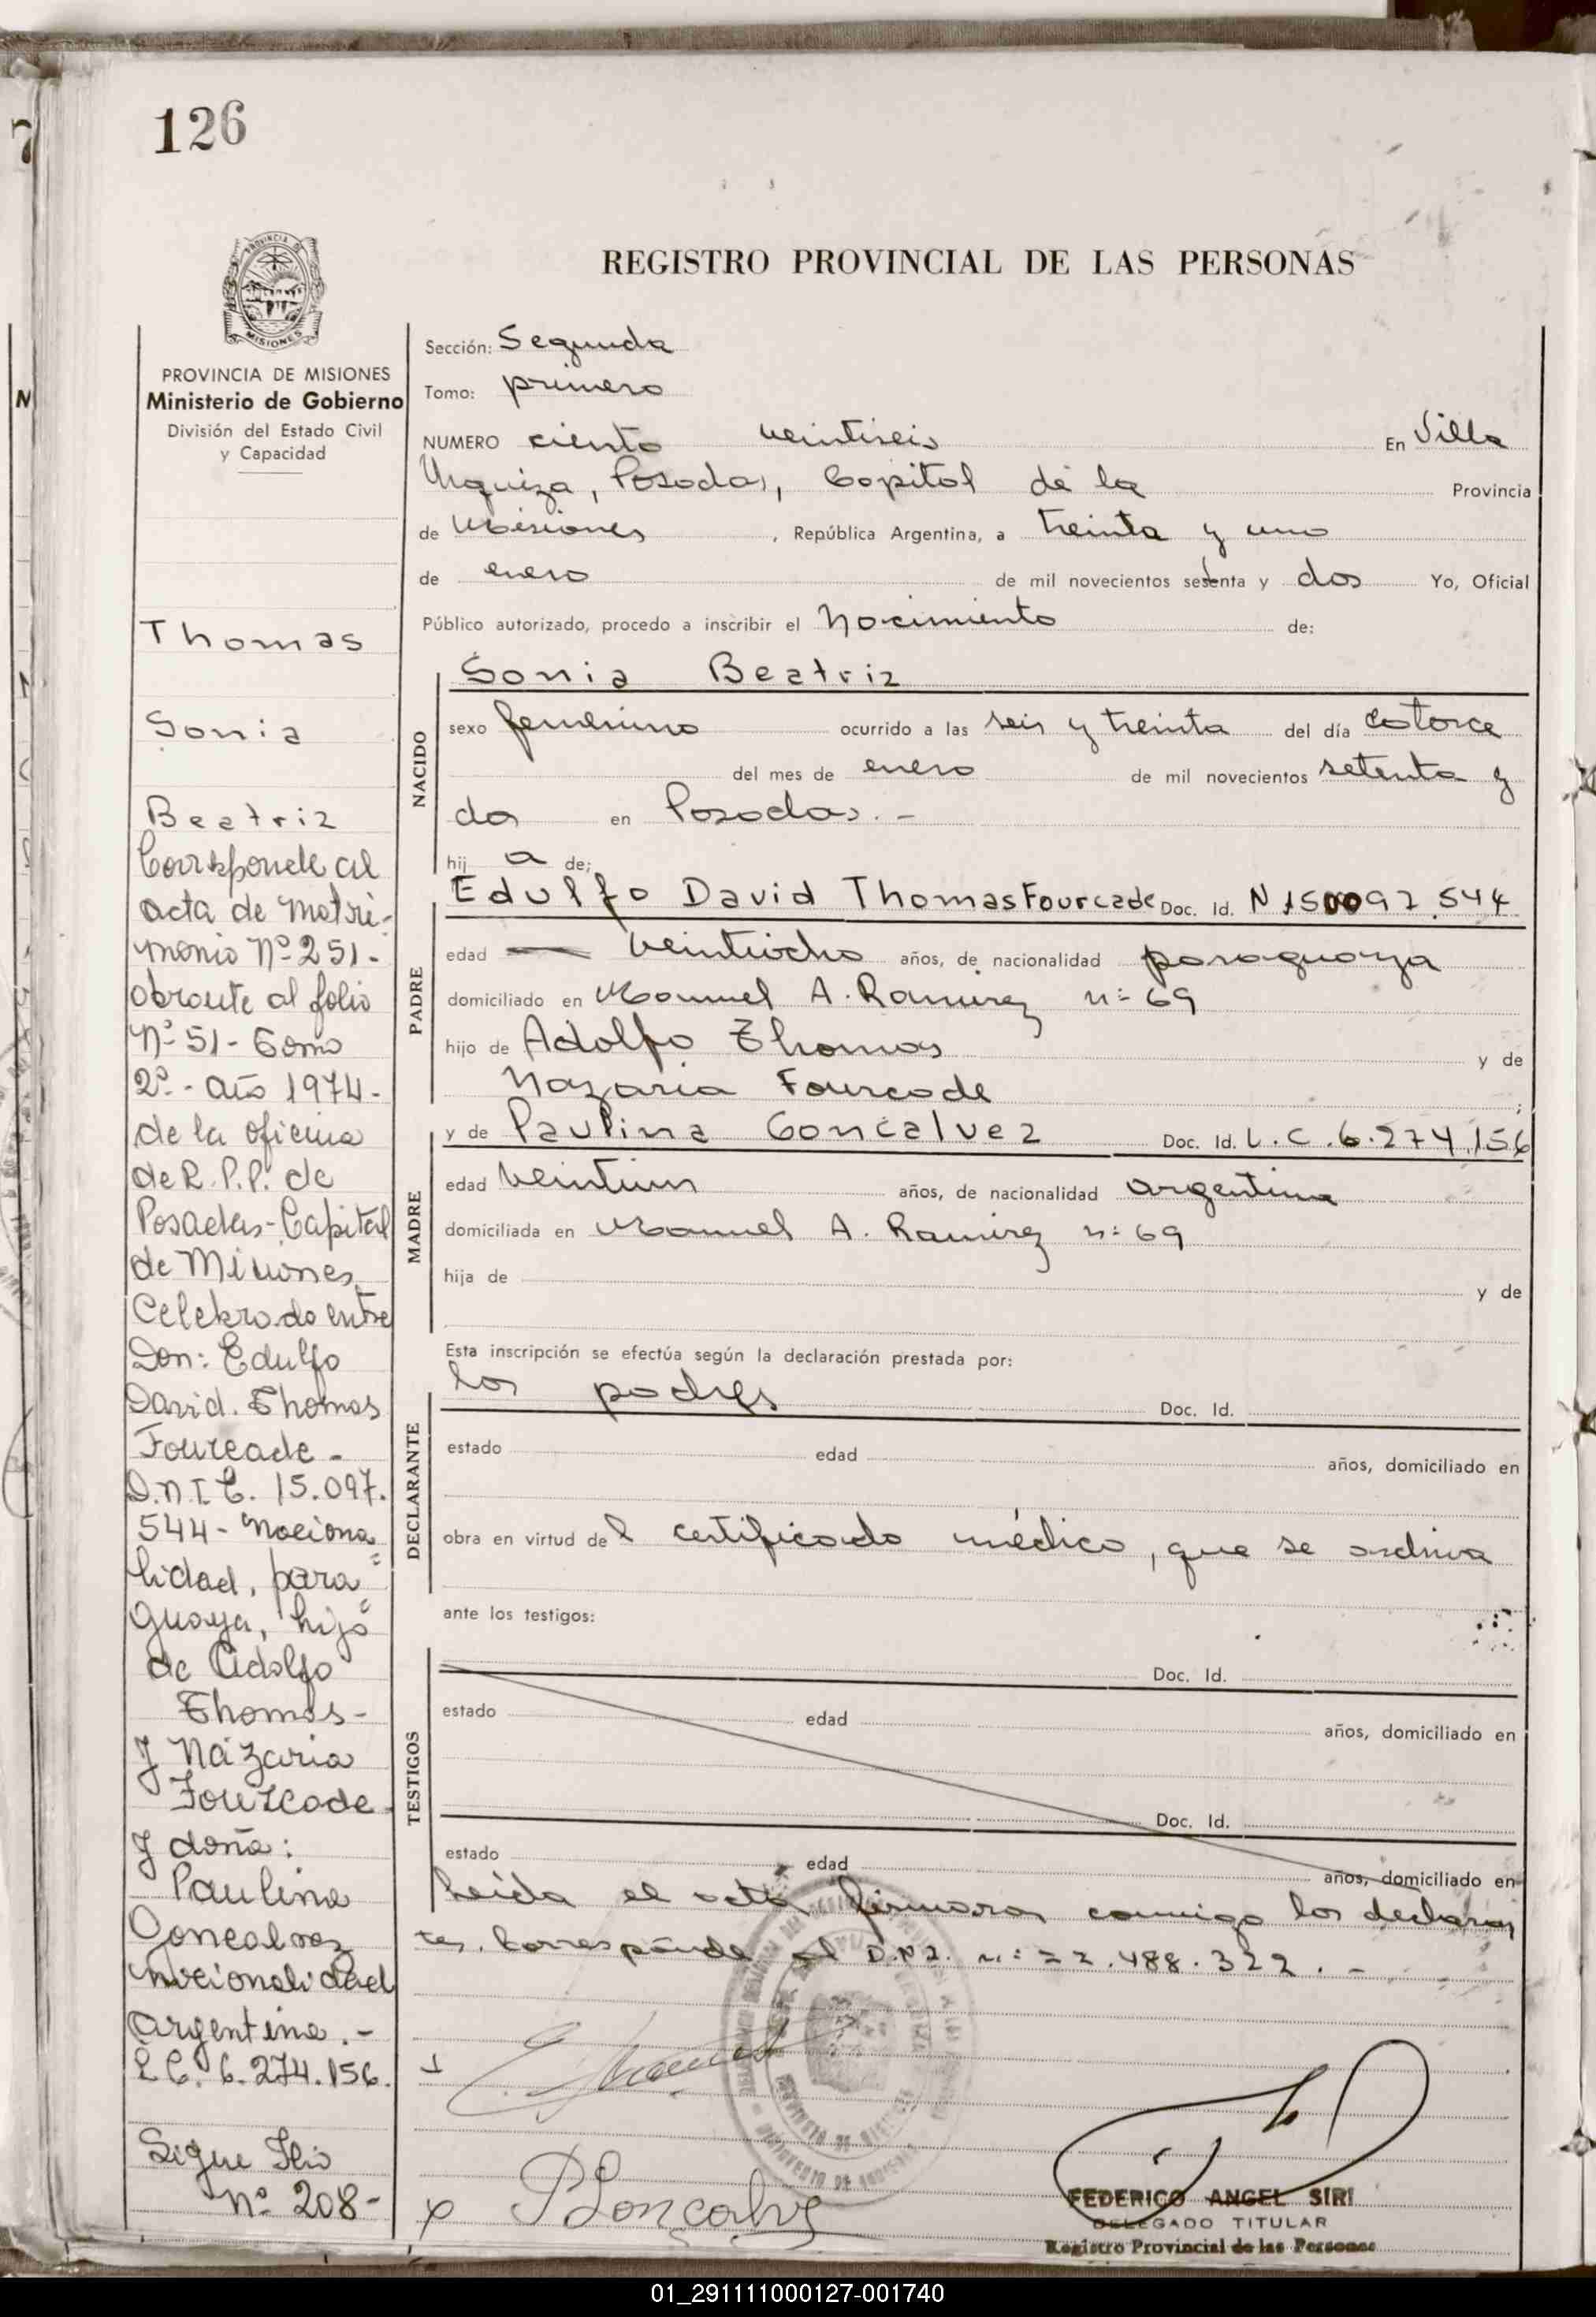 126
REGISTRO PROVINCIAL DE LAS PERSONAS
PROVINCIA DE MISIONES
Ministerio de Gobierno
División del Estado Civil
y Capacidad
Thomas
Sonia
Beatriz
Corresponde al
acta de Matri-
monio Nº 251-
obrante al folio
Nº 51 - Tomo
2º - año 1974 -
de la oficina
de R.P.P. de
Posadas - Capital
de Misiones
Celebrado entre
Don: Edulfo
David. Thomas
Fourcade -
D.N.I. E. 15.097.
544 - Naciona
lidad, para
guaya, hijo
de Adolfo
Thomas -
y Nazaria
Fourcade.
y doña:
Paulina
Goncalvez
nacionalidad
Argentina. -
L C. 6.274.156.
Sigue Flio
Nº 208 -
Sección: Segunda
Tomo: primero
NUMERO ciento veintiseis En Villa
Urquiza, Posadas, Capital de la Provincia
de Misiones , República Argentina, a treinta y uno
de enero de mil novecientos setenta y dos Yo, Oficial
Público autorizado, procedo a inscribir el Nacimiento de:
NACIDO
Sonia Beatriz
sexo femenino ocurrido a las seis y treinta del día catorce
del mes de enero de mil novecientos setenta y
dos en Posadas. -
hij a de;
PADRE
Edulfo David Thomas Fourcade Doc. Id. N 15097.544
edad veintiocho años, de nacionalidad paraguaya
domiciliado en Manuel A. Ramirez nº 69
hijo de Adolfo Thomas y de
Nazaria Fourcade ;
MADRE
y de Paulina Goncalvez Doc. Id. L.C. 6.274.156
edad veintiun años, de nacionalidad argentina
domiciliada en Manuel A. Ramirez nº 69
hija de y de
Esta inscripción se efectúa según la declaración prestada por:
DECLARANTE
los padres Doc. Id.
estado edad años, domiciliado en
obra en virtud de l certificado médico, que se archiva
ante los testigos:
TESTIGOS
Doc. Id.
estado edad años, domiciliado en
Doc. Id.
estado edad años, domiciliado en
Leída el acta firmaron conmigo los declaran
tes. Corresponde al D.N.I. nº 22.488.322. -
x P Goncalvez
FEDERICO ANGEL SIRI
DELEGADO TITULAR
Registro Provincial de las Personas
01_291111000127-001740